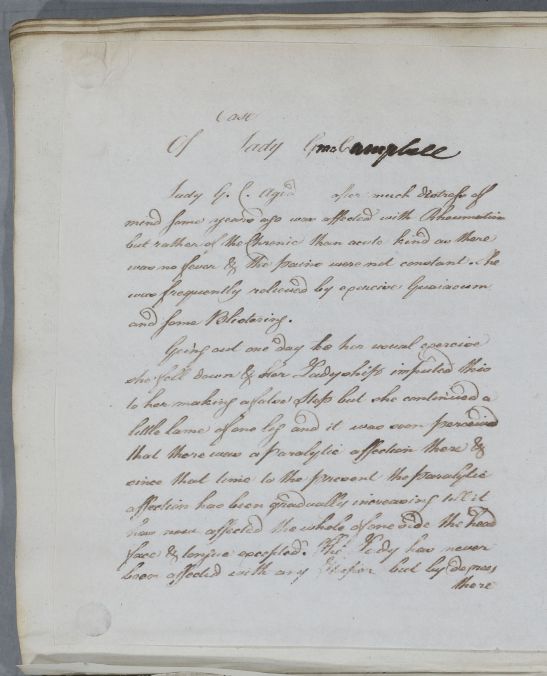 Case
Of Lady Campbell
Lady G. C. Aged after much distress of
mind some years ago was affected with Rheumatism
but rather of the Chronic than acute kind as there
was no fever & the pains were not constant. She
was frequently relieved by exercise Guaiacum
and some Blistering.
Going out one day to her usual exercise
she fell down & Her Ladyship imputed this
to her making a false Step but she continued a
little lame of one leg and it was soon perceived
that there was a paralytic affection there &
since that time to the present the paralytic
affection has been gradually increasing till it
has now affected the whole of one side the head
face & tongue excepted. The Lady has never
been affected with any Stupor but by degrees
there